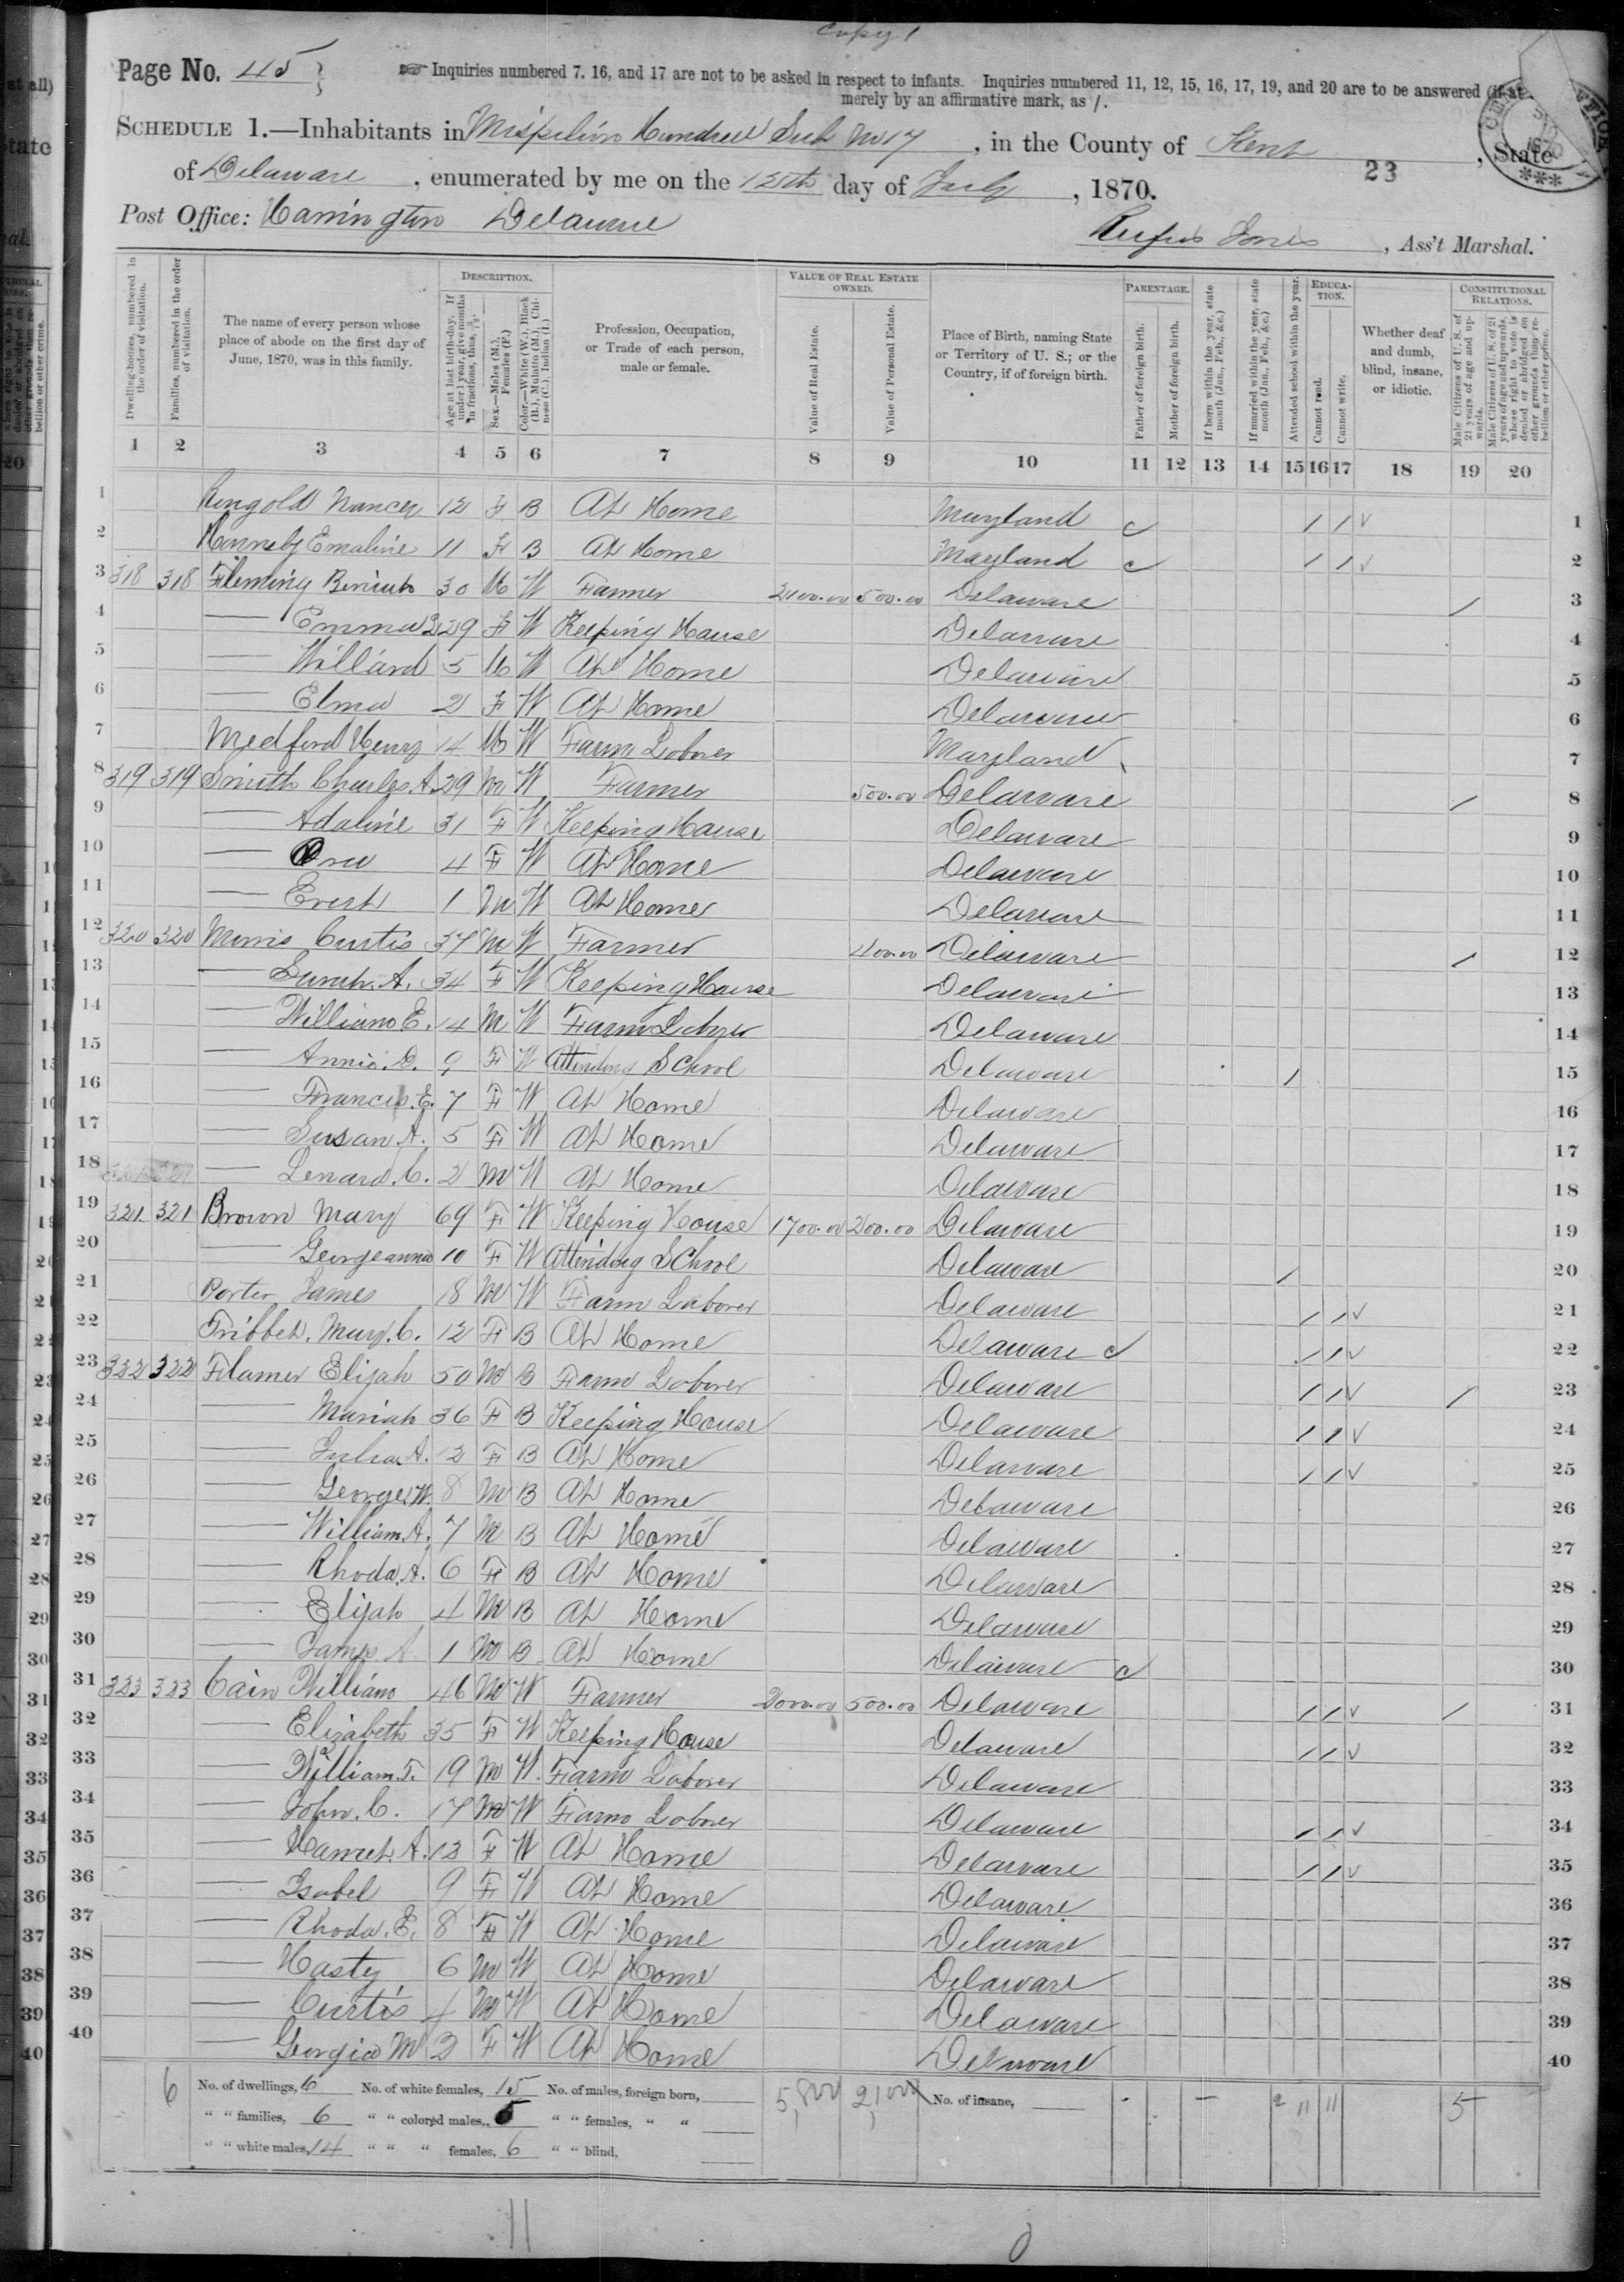 Copy 1
Page No. 45
☞ Inquiries numbered 7, 16, and 17 are not to be asked in respect to infants. Inquiries numbered 11, 12, 15, 16, 17, 19, and 20 are to be answered (if at
merely by an affirmative mark, as /.
SCHEDULE 1.—Inhabitants in Mispilion Hundred Sub No 17, in the County of Kent, State
23
of Delaware, enumerated by me on the 12th day of July, 1870.
Post Office: Harrington Delaware
Rufus Jones, Ass't Marshal.
Dwelling-houses, numbered in the order of visitation.
Families, numbered in the order of visitation.
The name of every person whose place of abode on the first day of June, 1870, was in this family.
DESCRIPTION.
Age at last birth-day. If under 1 year, give months in fractions, thus, 3/12.
Sex.—Males (M.), Females (F.)
Color.—White (W.), Black (B.), Mulatto (M.), Chinese (C.), Indian (I.)
Profession, Occupation, or Trade of each person, male or female.
VALUE OF REAL ESTATE OWNED.
Value of Real Estate.
Value of Personal Estate.
Place of Birth, naming State or Territory of U. S.; or the Country, if of foreign birth.
PARENTAGE.
Father of foreign birth.
Mother of foreign birth.
If born within the year, state month (Jan., Feb., &c.)
If married within the year, state month (Jan., Feb., &c.)
Attended school within the year.
EDUCATION.
Cannot read.
Cannot write.
Whether deaf and dumb, blind, insane, or idiotic.
CONSTITUTIONAL RELATIONS.
Male Citizens of U. S. of 21 years of age and upwards.
Male Citizens of U. S. of 21 years of age and upwards, where right to vote is denied or abridged on other grounds than rebellion or other crime.
1 2 3 4 5 6 7 8 9 10 11 12 13 14 15 16 17 18 19 20
1 Ringold Nancy 12 F B At Home Maryland / / ✓ 1
2 Hornsby Emaline 11 F B At Home Maryland / / ✓ 2
3 318 318 Fleming Beniah 30 M W Farmer 2100.00 500.00 Delaware / 3
4 — Emma 29 F W Keeping House Delaware 4
5 — Willard 5 M W At Home Delaware 5
6 — Elma 2 F W At Home Delaware 6
7 Medford Henry 14 M W Farm Laborer Maryland 7
8 319 319 Smith Charles A. 29 M W Farmer 500.00 Delaware / 8
9 — Adaline 31 F W Keeping House Delaware 9
10 — Ora 4 F W At Home Delaware 10
11 — Evert 1 M W At Home Delaware 11
12 320 320 Morris Curtis 37 M W Farmer 400.00 Delaware / 12
13 — Sarah A. 34 F W Keeping House Delaware 13
14 — William E. 14 M W Farm Laborer Delaware 14
15 — Annie 9 F W Attending School Delaware / 15
16 — Francis E. 7 F W At Home Delaware 16
17 — Susan A. 5 F W At Home Delaware 17
18 — Lenard C. 2 M W At Home Delaware 18
19 321 321 Brown Mary 69 F W Keeping House 1700.00 200.00 Delaware 19
20 — Georgeanna 10 F W Attending School Delaware / 20
21 Porter James 18 M W Farm Laborer Delaware / / ✓ 21
22 Tribbet, Mary C. 12 F B At Home Delaware / / ✓ 22
23 322 322 Flamer Elijah 50 M B Farm Laborer Delaware / / ✓ / 23
24 — Mariah 36 F B Keeping House Delaware / / ✓ 24
25 — Julia A. 12 F B At Home Delaware / / ✓ 25
26 — George W. 8 M B At Home Delaware 26
27 — William A. 7 M B At Home Delaware 27
28 — Rhoda A. 6 F B At Home Delaware 28
29 — Elijah 4 M B At Home Delaware 29
30 — James A 1 M B At Home Delaware 30
31 323 323 Cain William 46 M W Farmer 2000.00 500.00 Delaware / / ✓ / 31
32 — Elizabeth 35 F W Keeping House Delaware / / ✓ 32
33 — William T. 19 M W Farm Laborer Delaware 33
34 — John C. 17 M W Farm Laborer Delaware / / ✓ 34
35 — A. 13 F W At Home Delaware / / ✓ 35
36 — Isabel 9 F W At Home Delaware 36
37 — Rhoda E. 8 F W At Home Delaware 37
38 — Hasty 6 M W At Home Delaware 38
39 — Curtis 4 M W At Home Delaware 39
40 — Georgia M 2 F W At Home Delaware 40
6 No. of dwellings, 6 No. of white females, 15 No. of males, foreign born, 5,800 2,100 No. of insane, 2 11 11 5
" " families, 6 " " colored males, 5 " " females, " "
" " white males, 14 " " " females, 6 " " blind,
11 0